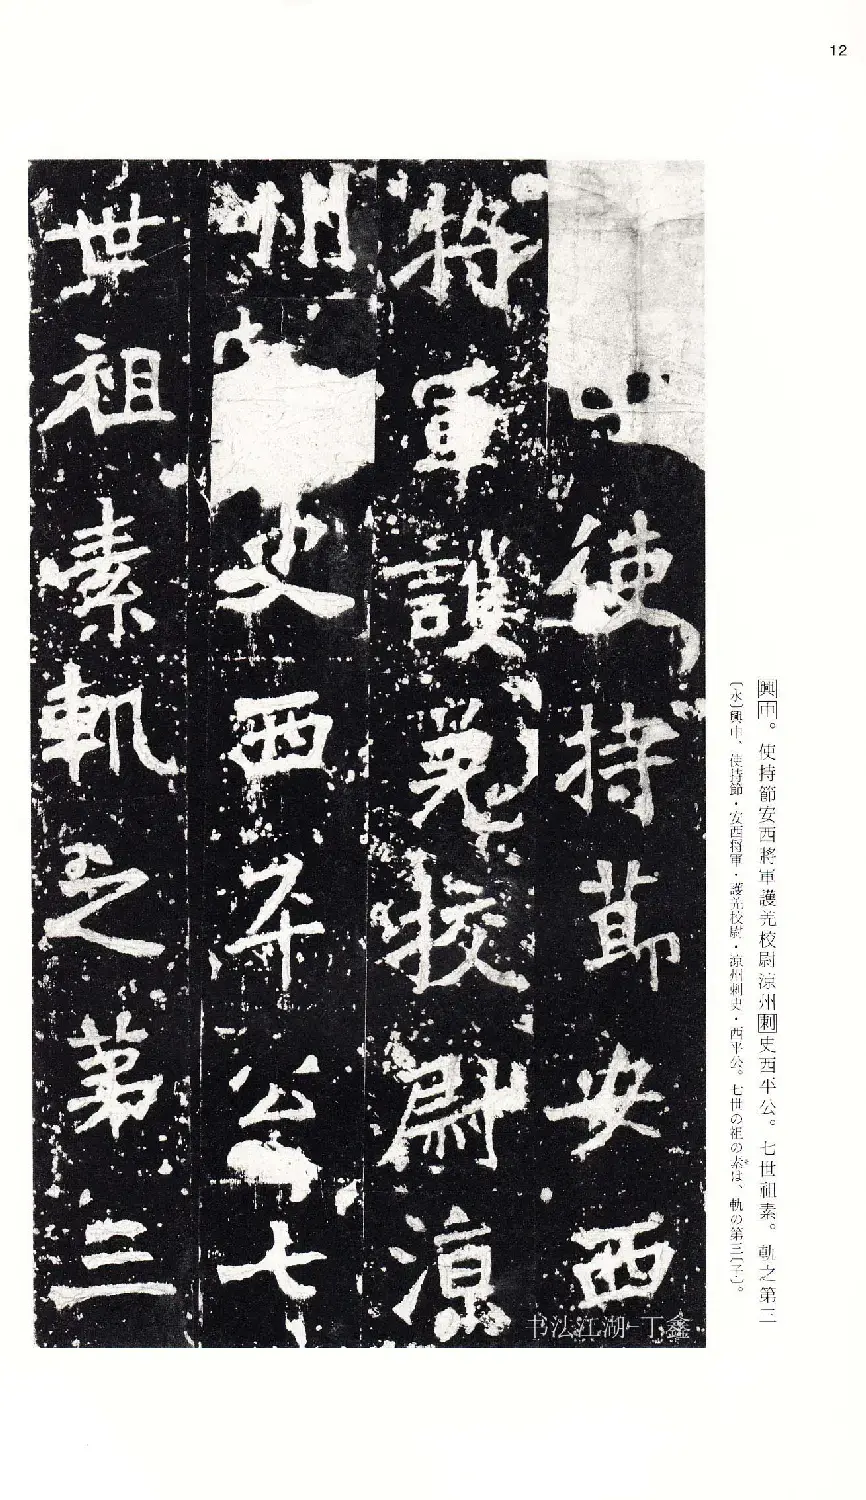 12
使持節安西
將軍護羌校尉涼
州史西平公七
世祖素軌之第三
興中。使持節安西將軍護羌校尉涼州刺史西平公。七世祖素。軌之第三
〔永〕興中、使持節・安西将軍・護羌校尉・涼州刺史・西平公。七世の祖の素は、軌の第三〔子〕。
书法江湖-丁鑫